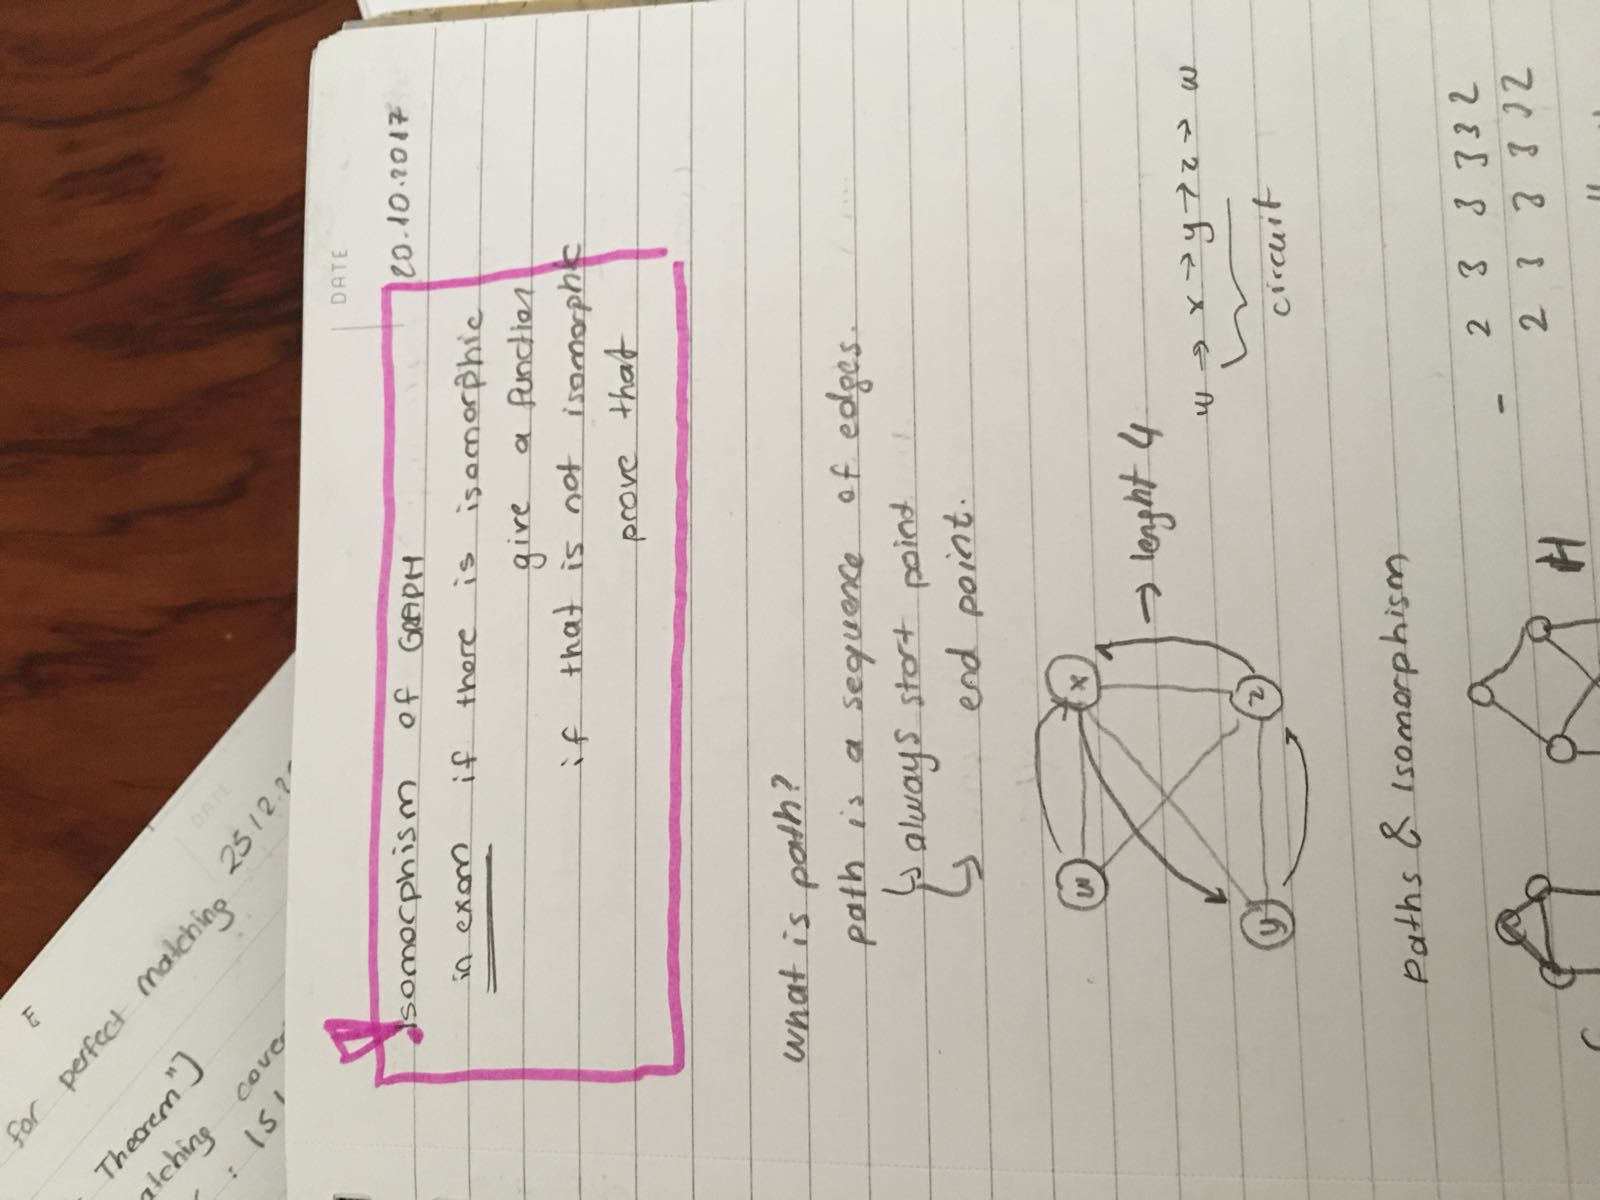 E
for perfect matching 25.12.2
Theorem"]
atching cover
: |S|
DATE
DATE
Isomorphism of GRAPH
20.10.2017
in exam if there is isomorphic
give a function
if that is not isomorphic
prove that
what is path?
path is a sequence of edges.
↳ always start point
↳ end point.
w x
→ lenght 4
w → x → y → z → w
y z
circuit
Paths & Isomorphism
- 2 3 3 3 3 2
2 3 3 3 3 2
H